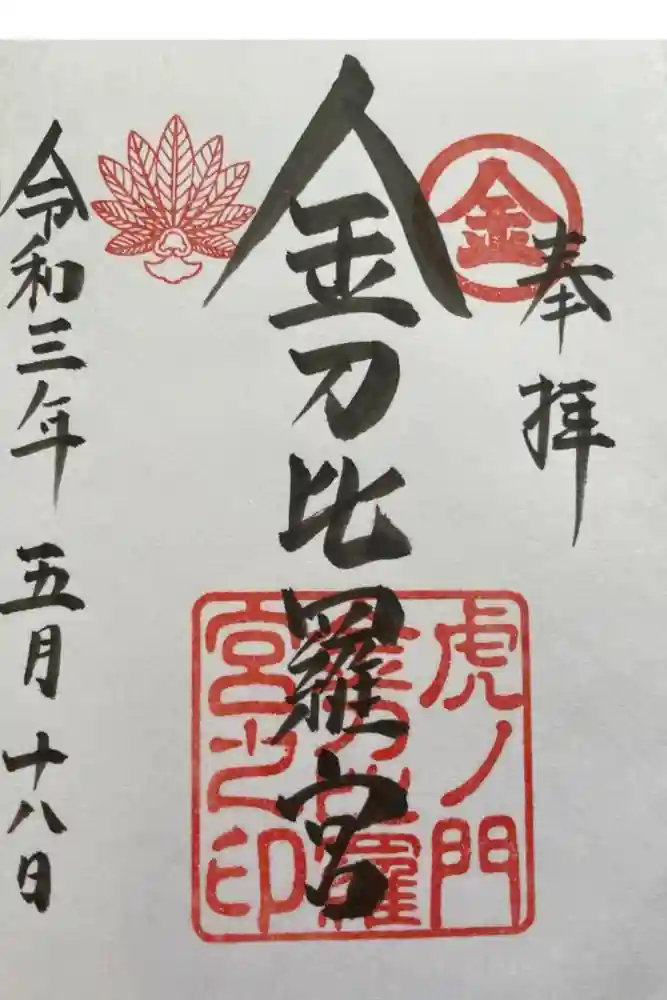 奉拝
金
金刀比羅宮
虎ノ門
金刀比羅
宮之印
令和三年 五月 十八日